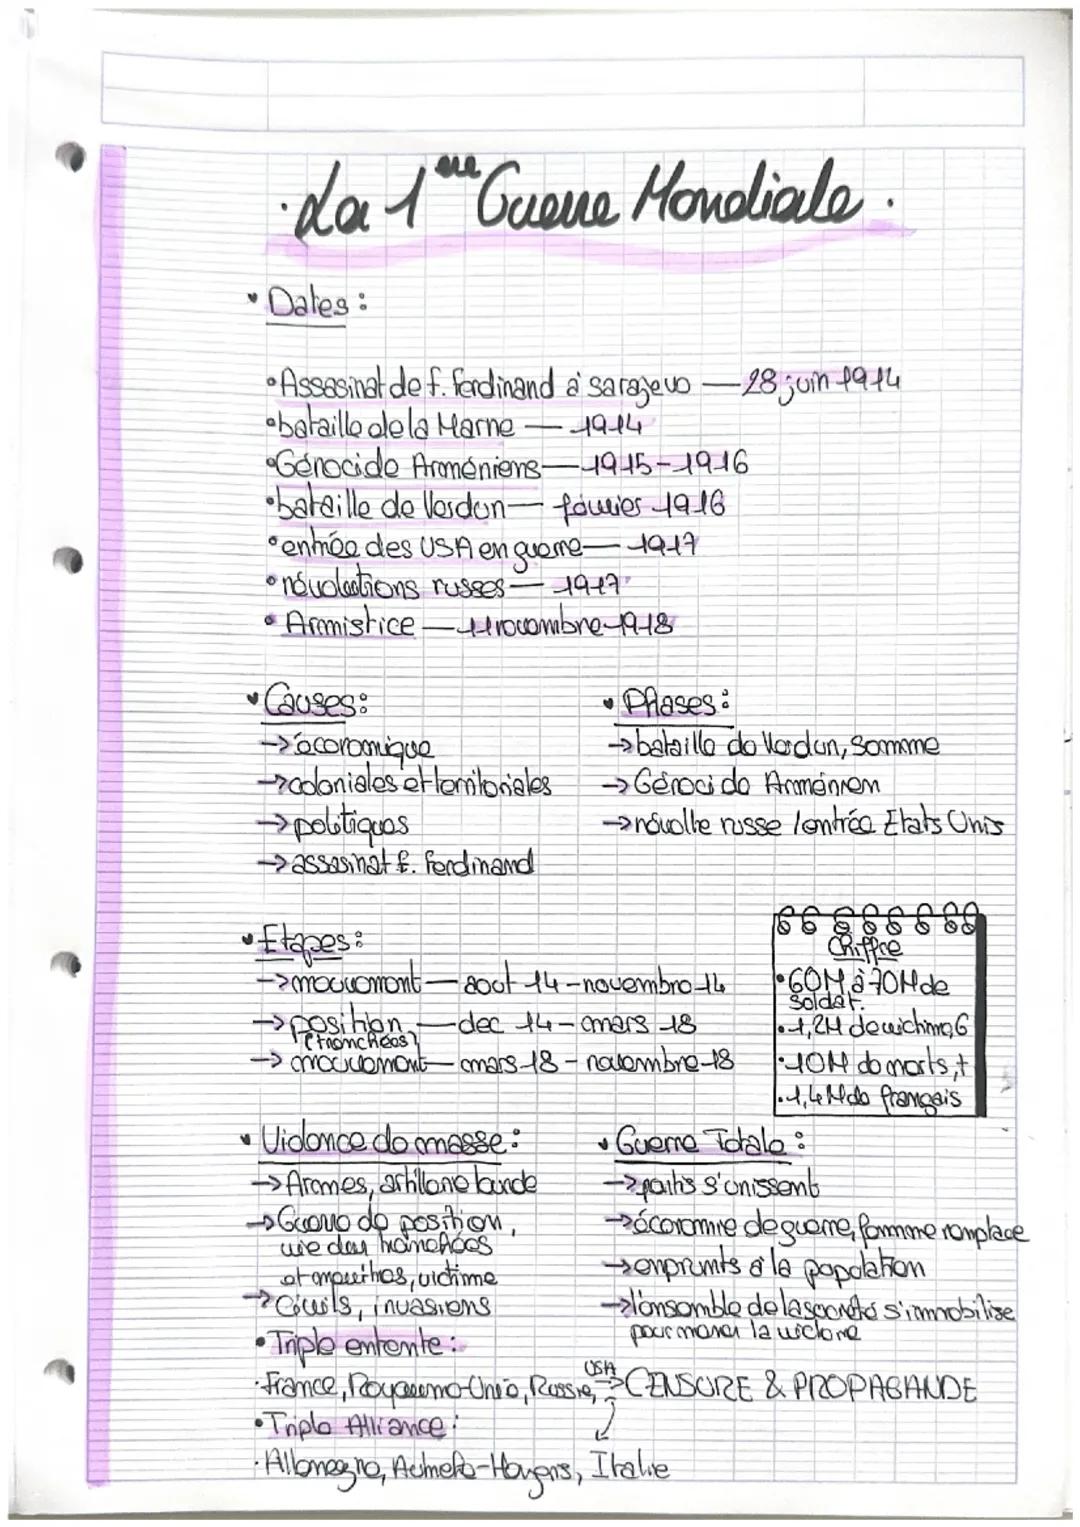 · La 1ère Guerre Mondiale.
Dates :
• Assasinat de f. ferdinand à sarajevo — 28 juin 1914
• bataille de la Marne — 1914
• Génocide Arméniens — 1915-1916
• bataille de Verdun — février 1916
• entrée des USA en guerre — 1917
• révolutions russes — 1917
• Armistice — 11 novembre 1918
Causes :
→ économique
→ coloniales et territoriales
→ politiques
→ assasinat f. ferdinand
Phases :
→ bataille de Verdun, Somme
→ Génocide Arménien
→ révolte russe / entrée Etats Unis
Etapes :
→ mouvement — aout 14 - novembre 14
→ position — dec 14 - mars 18
(tranchées)
→ mouvement — mars 18 - novembre 18
Chiffre
• 60M à 70M de
soldat.
• 1,2M de victime,G
• 10M de morts,+
• 1,4M de français
Violence de masse :
→ Armes, artillerie lourde
→ Guerre de position,
vie des tranchées
et meurtres, victime
→ Civils, invasions
Guerre Totale :
→ partis s'unissent
→ économie de guerre, femme remplace
→ emprunts à la population
→ l'ensemble de la société s'immobilise
pour mener la victoire
→ CENSURE & PROPAGANDE
• Triple entente :
· France, Royaume-Unie, Russie, USA
• Triple Alliance :
· Allemagne, Autriche-Hongrois, Italie